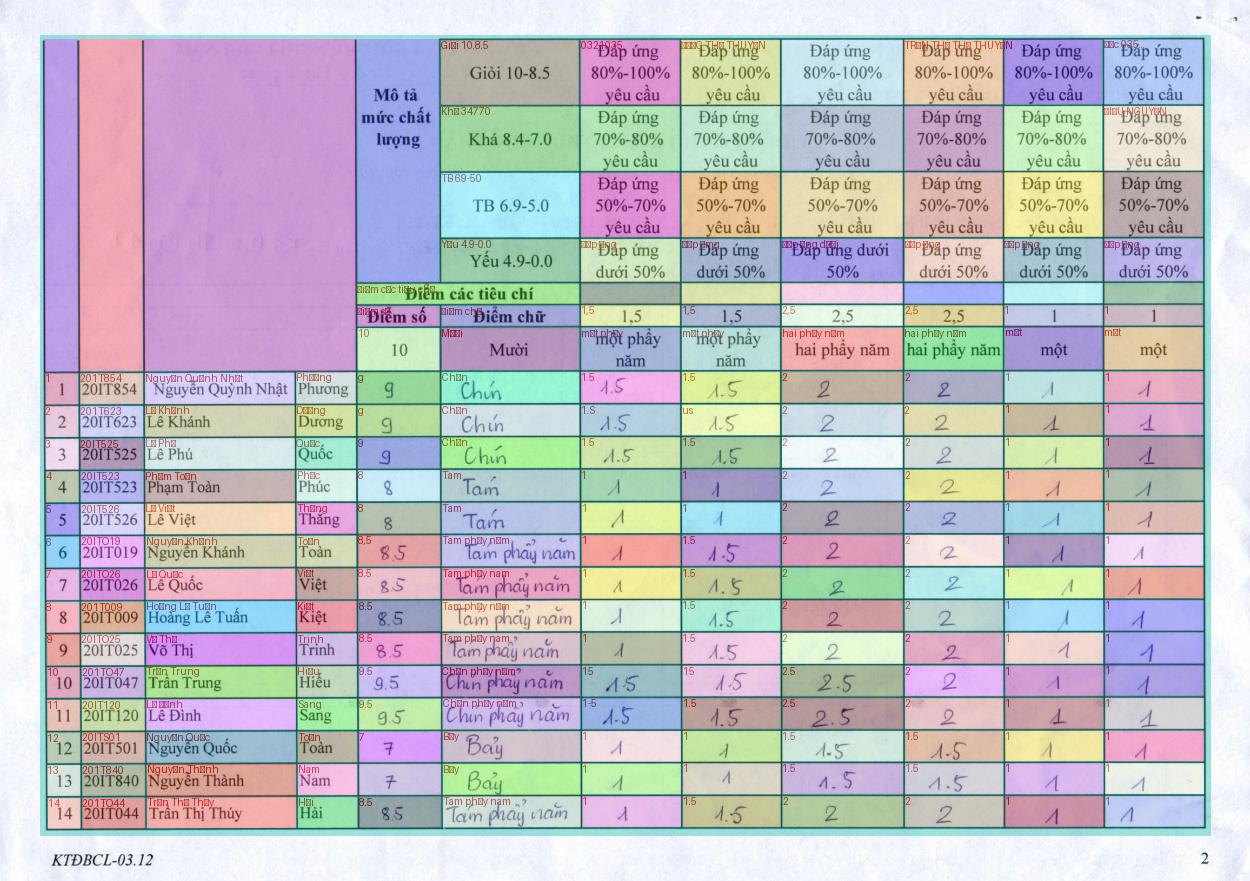 Mô tả mức chất lượng
Giỏi 10-8.5 Đáp ứng 80%-100% yêu cầu Đáp ứng 80%-100% yêu cầu Đáp ứng 80%-100% yêu cầu Đáp ứng 80%-100% yêu cầu Đáp ứng 80%-100% yêu cầu Đáp ứng 80%-100% yêu cầu
Khá 8.4-7.0 Đáp ứng 70%-80% yêu cầu Đáp ứng 70%-80% yêu cầu Đáp ứng 70%-80% yêu cầu Đáp ứng 70%-80% yêu cầu Đáp ứng 70%-80% yêu cầu Đáp ứng 70%-80% yêu cầu
TB 6.9-5.0 Đáp ứng 50%-70% yêu cầu Đáp ứng 50%-70% yêu cầu Đáp ứng 50%-70% yêu cầu Đáp ứng 50%-70% yêu cầu Đáp ứng 50%-70% yêu cầu Đáp ứng 50%-70% yêu cầu
Yếu 4.9-0.0 Đáp ứng dưới 50% Đáp ứng dưới 50% Đáp ứng dưới 50% Đáp ứng dưới 50% Đáp ứng dưới 50% Đáp ứng dưới 50%
Điểm các tiêu chí
Điểm số Điểm chữ 1,5 1,5 2,5 2,5 1 1
10 Mười một phẩy năm một phẩy năm hai phẩy năm hai phẩy năm một một
1 20IT854 Nguyễn Quỳnh Nhật Phương 9 Chín 1.5 1.5 2 2 1 1
2 20IT623 Lê Khánh Dương 9 Chín 1.5 1.5 2 2 1 1
3 20IT525 Lê Phú Quốc 9 Chín 1.5 1.5 2 2 1 1
4 20IT523 Phạm Toàn Phúc 8 Tám 1 1 2 2 1 1
5 20IT526 Lê Việt Thăng 8 Tám 1 1 2 2 1 1
6 20IT019 Nguyễn Khánh Toàn 8.5 Tám phẩy năm 1 1.5 2 2 1 1
7 20IT026 Lê Quốc Việt 8.5 Tám phẩy năm 1 1.5 2 2 1 1
8 20IT009 Hoàng Lê Tuấn Kiệt 8.5 Tám phẩy năm 1 1.5 2 2 1 1
9 20IT025 Võ Thị Trinh 8.5 Tám phẩy năm 1 1.5 2 2 1 1
10 20IT047 Trần Trung Hiếu 9.5 Chín phẩy năm 1.5 1.5 2.5 2 1 1
11 20IT120 Lê Đình Sang 9.5 Chín phẩy năm 1.5 1.5 2.5 2 1 1
12 20IT501 Nguyễn Quốc Toàn 7 Bảy 1 1 1.5 1.5 1 1
13 20IT840 Nguyễn Thành Nam 7 Bảy 1 1 1.5 1.5 1 1
14 20IT044 Trần Thị Thúy Hải 8.5 Tám phẩy năm 1 1.5 2 2 1 1
KTĐBCL-03.12 2